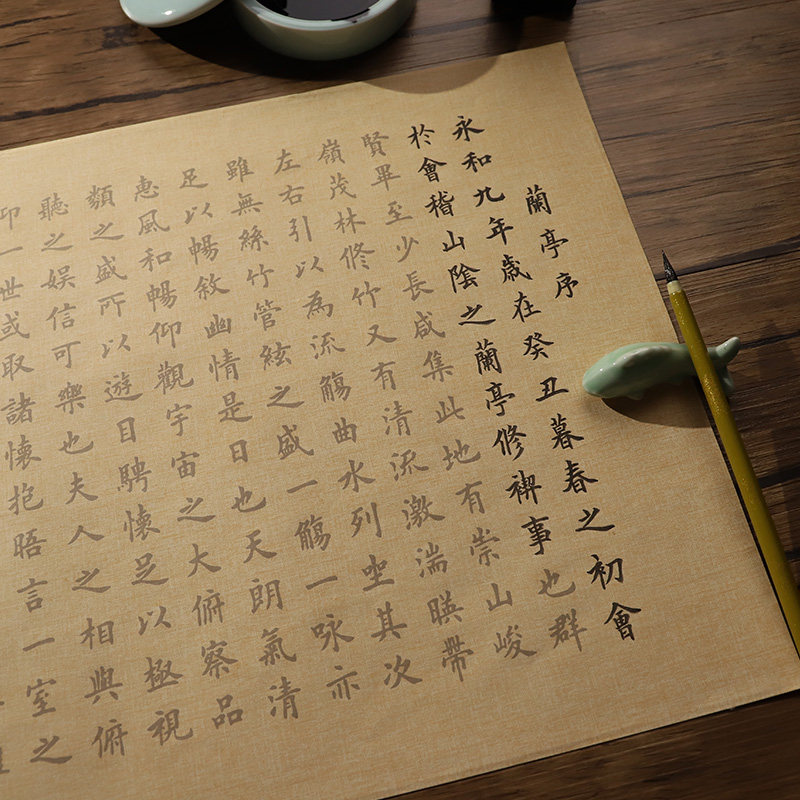 蘭亭序
永和九年歲在癸丑暮春之初會
於會稽山陰之蘭亭修禊事也群
賢畢至少長咸集此地有崇山峻
嶺茂林修竹又有清流激湍暎帶
左右引以為流觴曲水列坐其次
雖無絲竹管絃之盛一觴一咏亦
足以暢敘幽情是日也天朗氣清
惠風和暢仰觀宇宙之大俯察品
類之盛所以遊目騁懷足以極視
聽之娛信可樂也夫人之相與俯
仰一世或取諸懷抱晤言一室之